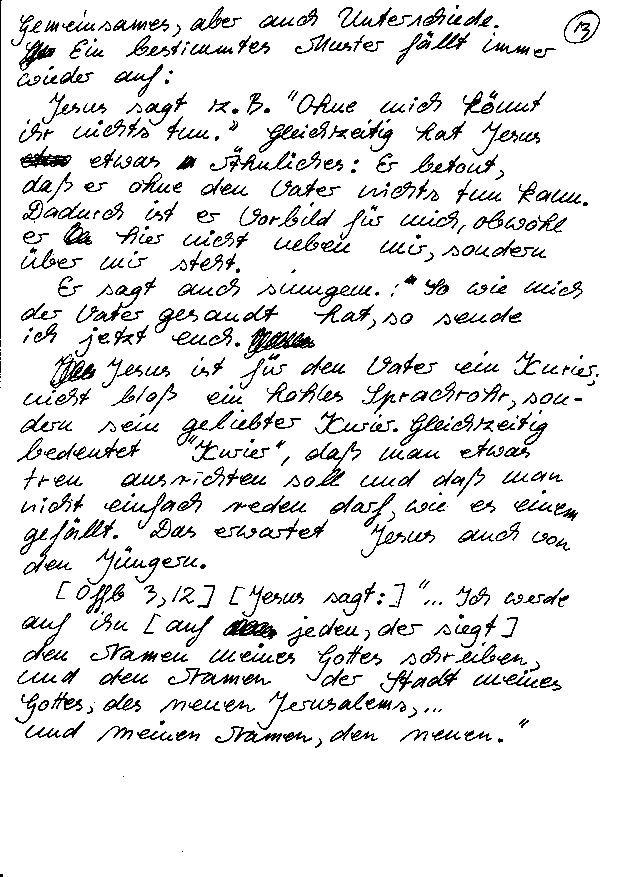 Gemeinsames, aber auch Unterschiede.
13
Ein bestimmtes Muster fällt immer
wieder auf:
Jesus sagt z.B. "Ohne mich könnt
ihr nichts tun." Gleichzeitig hat Jesus
etwas Ähnliches: Er betont,
daß er ohne den Vater nichts tun kann.
Dadurch ist er Vorbild für mich, obwohl
er hier nicht neben mir, sondern
über mir steht.
Er sagt auch sinngem.: "So wie mich
der Vater gesandt hat, so sende
ich jetzt euch.
Jesus ist für den Vater ein Kurier,
nicht bloß ein hohles Sprachrohr, son-
dern sein geliebter Kurier. Gleichzeitig
bedeutet "Kurier", daß man etwas
treu ausrichten soll und daß man
nicht einfach reden darf, wie es einem
gefällt. Das erwartet Jesus auch von
den Jüngern.
[Offb 3,12] [Jesus sagt:] "... Ich werde
auf ihn [auf jeden, der siegt]
den Namen meines Gottes schreiben,
und den Namen der Stadt meines
Gottes, des neuen Jerusalems,...
und meinen Namen, den neuen."